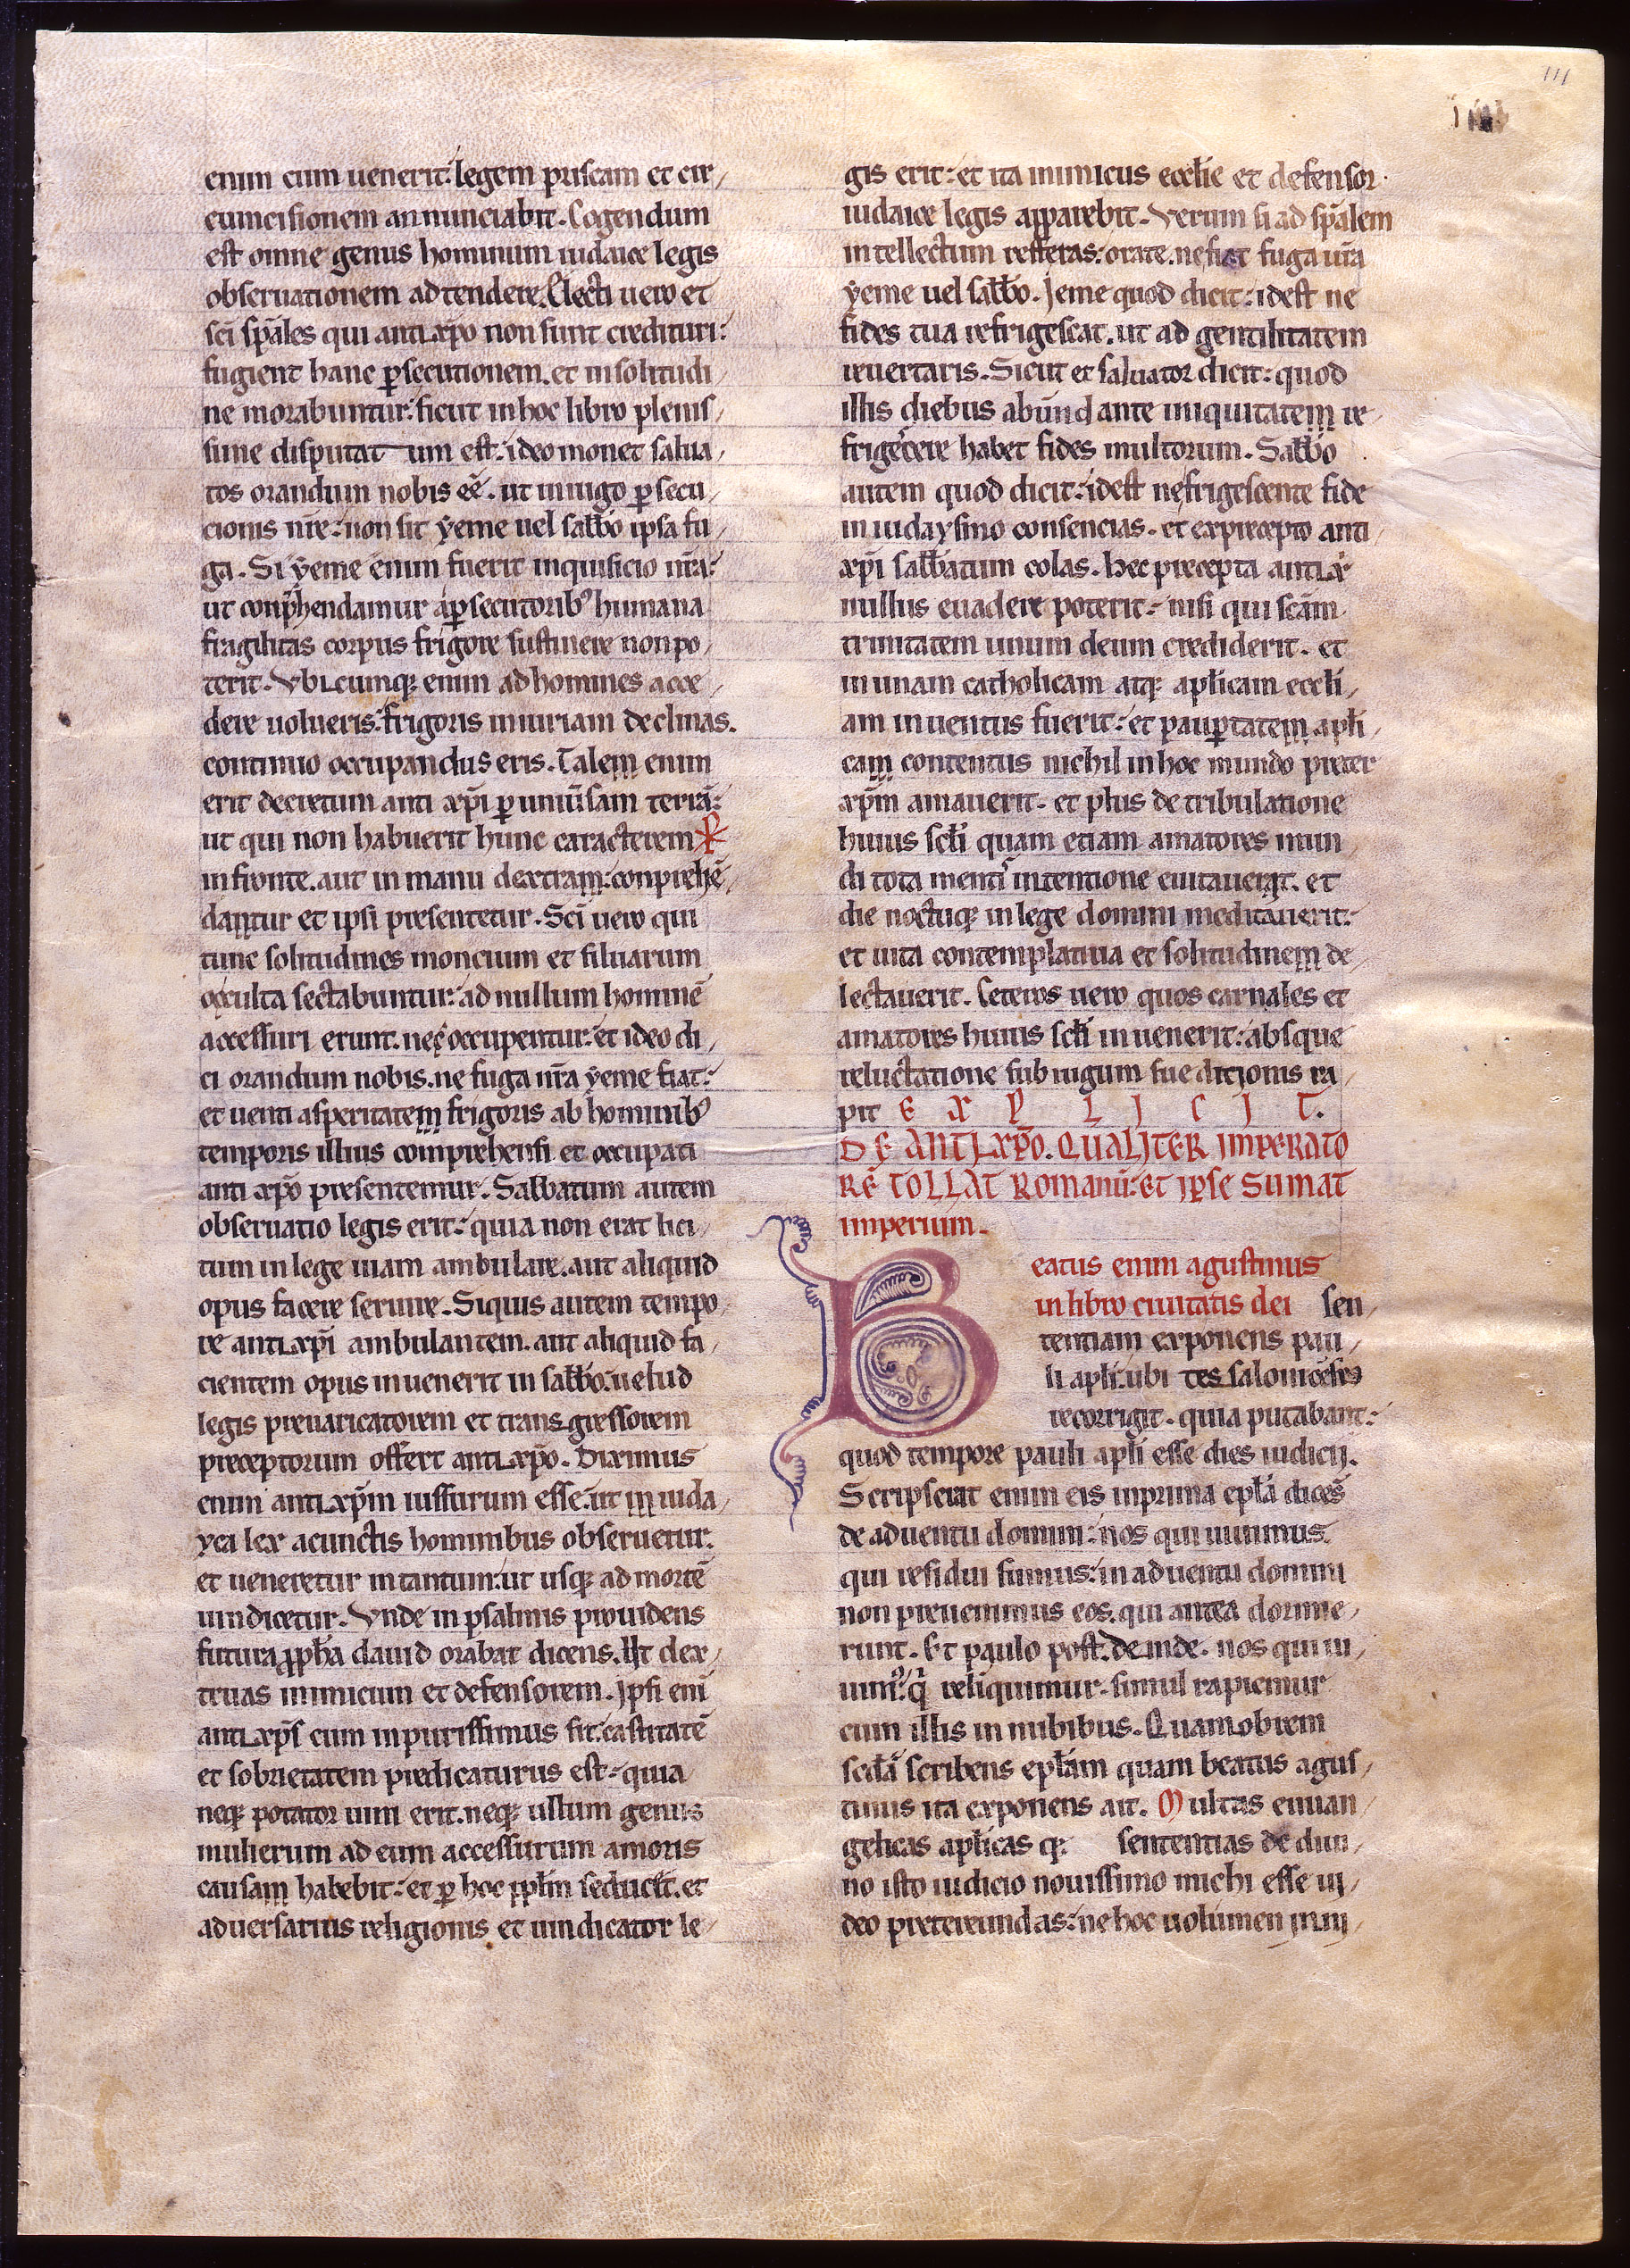 111
enim cum uenerit: legem priscam et cir,
cumcisionem annunciabit. Cogendum
est omne genus hominum iudaice legis
obseruationem adtendere. Electi uero et
sc̄i sp̄ales qui antixp̄o non sunt credituri:
fugient hanc p̱secutionem. et in solitudi,
ne morabuntur: sicut in hoc libro plenis,
sime disputatum est: ideo monet salua,
tos orandum nobis ee̅. ut in iugo p̱secu,
cionis nr̄e: non sit yeme uel sabb̄o ipsa fu,
ga. Si yeme enim fuerit inquisicio nr̄a:
ut conp̄hendamur a p̱secutorib⁹ humana
fragilitas corpus frigore sustinere non po,
terit. Vbicumq; enim ad homines acce,
dere uolueris: frigoris iniuriam declinas.
continuo occupandus eris. Talem enim
erit decretum anti xp̄i p̱ uniūsam terrā:
ut qui non habuerit hunc caracterem ⳩
in fronte. aut in manu dextram: conprehē,
dantur et ipsi presentetur. Sc̄i uero qui
tunc solitudines moncium et siluarum
occulta sectabuntur: ad nullum hominē
accessuri erunt. nec occupentur: et ideo di,
ci orandum nobis. ne fuga nr̄a yeme fiat:
et uenti asperitatem frigoris ab hominib⁹
temporis illius comprehensi et occupati
anti xp̄o presentemur. Sabbatum autem
obseruatio legis erit: quia non erat lici,
tum in lege uiam ambulare. aut aliquid
opus facere seruire. Siquis autem tempo,
re antixp̄i ambulantem. aut aliquid fa,
cientem opus inuenerit in sabb̄o: uelud
legis preuaricatorem et transgressorem
preceptorum offert antixp̄o. Diximus
enim antixp̄m iussurum esse. ut in iuda,
yca lex a cunctis hominibus obseruetur.
et ueneretur in tantum: ut usq; ad mortē
uindicetur. Vnde in psalmis prouidens
futura p̱ph̄a dauid orabat dicens. Ut des,
truas inimicum et defensorem. Ipsi eni̅
antixp̄s cum inpurissimus sit: castitatē
et sobrietatem predicaturus est: quia
neq; potator uini erit. neq; ullum genus
mulierum ad eum accessurum amoris
causam habebit: et p̱ hoc pp̄lm seducet. et
aduersarius religionis et uindicator le,
gis erit: et ita inimicus eccl̄ie et defensor
iudaice legis apparebit. Verum si ad sp̄alem
intellectum refferas: orate. ne fiat fuga ur̄a
yeme uel sabb̄o. Ieme quod dicit: id est ne
fides tua refrigescat. ut ad gentilitatem
reuertaris. Sicut et saluator dicit: quod
illis diebus abundante iniquitatem re,
frigecere habet fides multorum. Sabb̄o
autem quod dicit: id est ne frigescente fide
in iudaysmo consencias. et ex precepto anti
xp̄i sabb̄atum colas. Hec precepta antix̄
nullus euadere poterit: nisi qui sc̄am
trinitatem unum deum crediderit. et
in unam catholicam atq; apl̄icam eccli,
am inuentus fuerit: et paup̱tatem apl̄i,
cam contentus nichil in hoc mundo preter
xp̄m amauerit. et plus de tribulatione
huius sc̄li quam etiam amatores mun,
di tota menti intentione euitauerat. et
die noctuq; in lege domini meditauerit:
et uita contemplatiua et solitudinem de,
lectauerit. Ceteros uero quos carnales et
amatores huius sc̄li inuenerit: absque
reluctatione sub iugum sue dicionis ra,
pit E X P L I C I T.
DE ANTIXP̄O. QUALITER IMPERATO
RE̅ TOLLAT ROMANU̅: ET IPSE SUMAT
imperium.
Beatus enim agustinus
in libro ciuitatis dei sen,
tentiam exponens pau,
li apl̄i: ubi tessalonicēses
recorrigit. quia putabant:
quod tempore pauli apl̄i esse dies iudicij.
Scripserat enim eis in prima epl̄a dices̄
de aduentu domini: nos qui uiuimus.
qui residui sumus: in aduentu domini
non preuenimus eos. qui antea dormie,
runt. Et paulo post. deinde. nos qui ui,
uim⁹. q̇ reliquimur. simul rapiemur
cum illis in nubibus. Quam obrem
sc̄da scribens epl̄am quam beatus agus,
tinus ita exponens ait. Multas euuan,
gelicas apl̄icas q; sententias de diui,
no isto iudicio nouissimo michi esse ui,
deo pretereundas: ne hoc uolumen in ni,